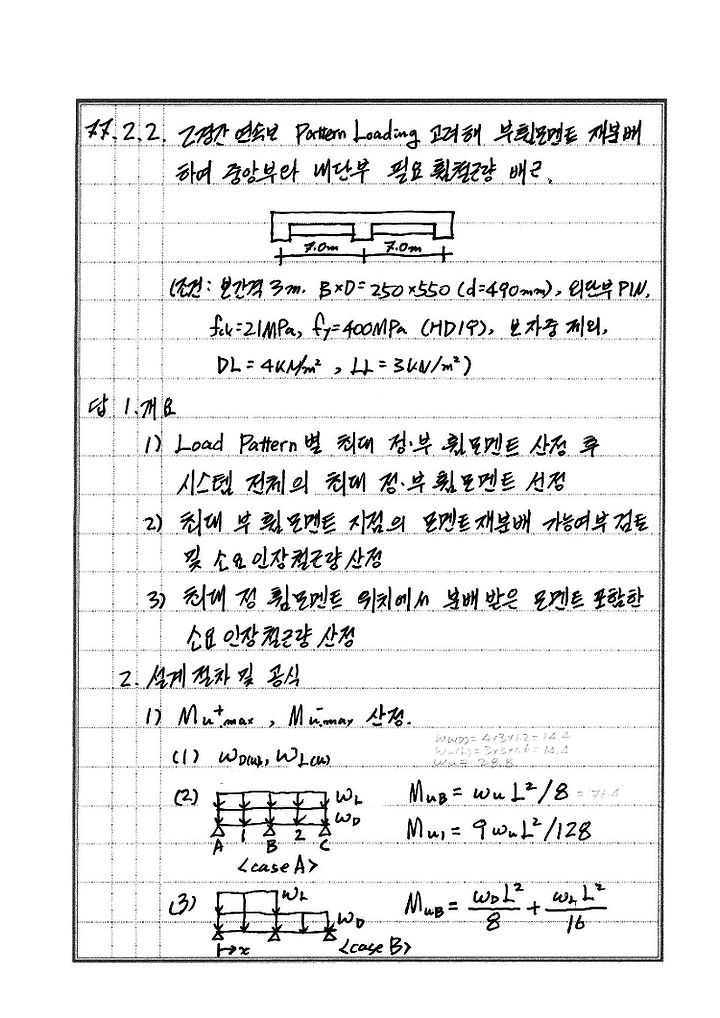 77.2.2. 2경간 연속보 Pattern Loading 고려해 부휨모멘트 재분배
하여 중앙부와 내단부 필요 휨철근량 배근.
7.0m 7.0m
(조건: 보간격 3m. B×D=250×550 (d=490mm), 외단부 PIN,
fck=21MPa, fy=400MPa (HD19), 보자중 제외,
DL=4KN/m², LL=3KN/m²)
답 1. 개요
1) Load Pattern별 최대 정·부 휨모멘트 산정 후
시스템 전체의 최대 정·부 휨모멘트 선정
2) 최대 부휨모멘트 지점의 모멘트재분배 가능여부 검토
및 소요인장철근량 산정
3) 최대 정 휨모멘트 위치에서 분배 받은 모멘트 포함한
소요인장철근량 산정
2. 설계절차 및 공식
1) Mu⁺max, Mu⁻max 산정.
Wu(D)=4×3×1.2=14.4
Wu(L)=3×3×1.6=14.4
Wu= 28.8
(1) WD(u), WL(u)
(2) WL MuB = wuL²/8
WD
A 1 B 2 C Mu1 = 9wuL²/128
<case A>
(3) WL MuB = WDL²/8 + WLL²/16
WD
x <case B>